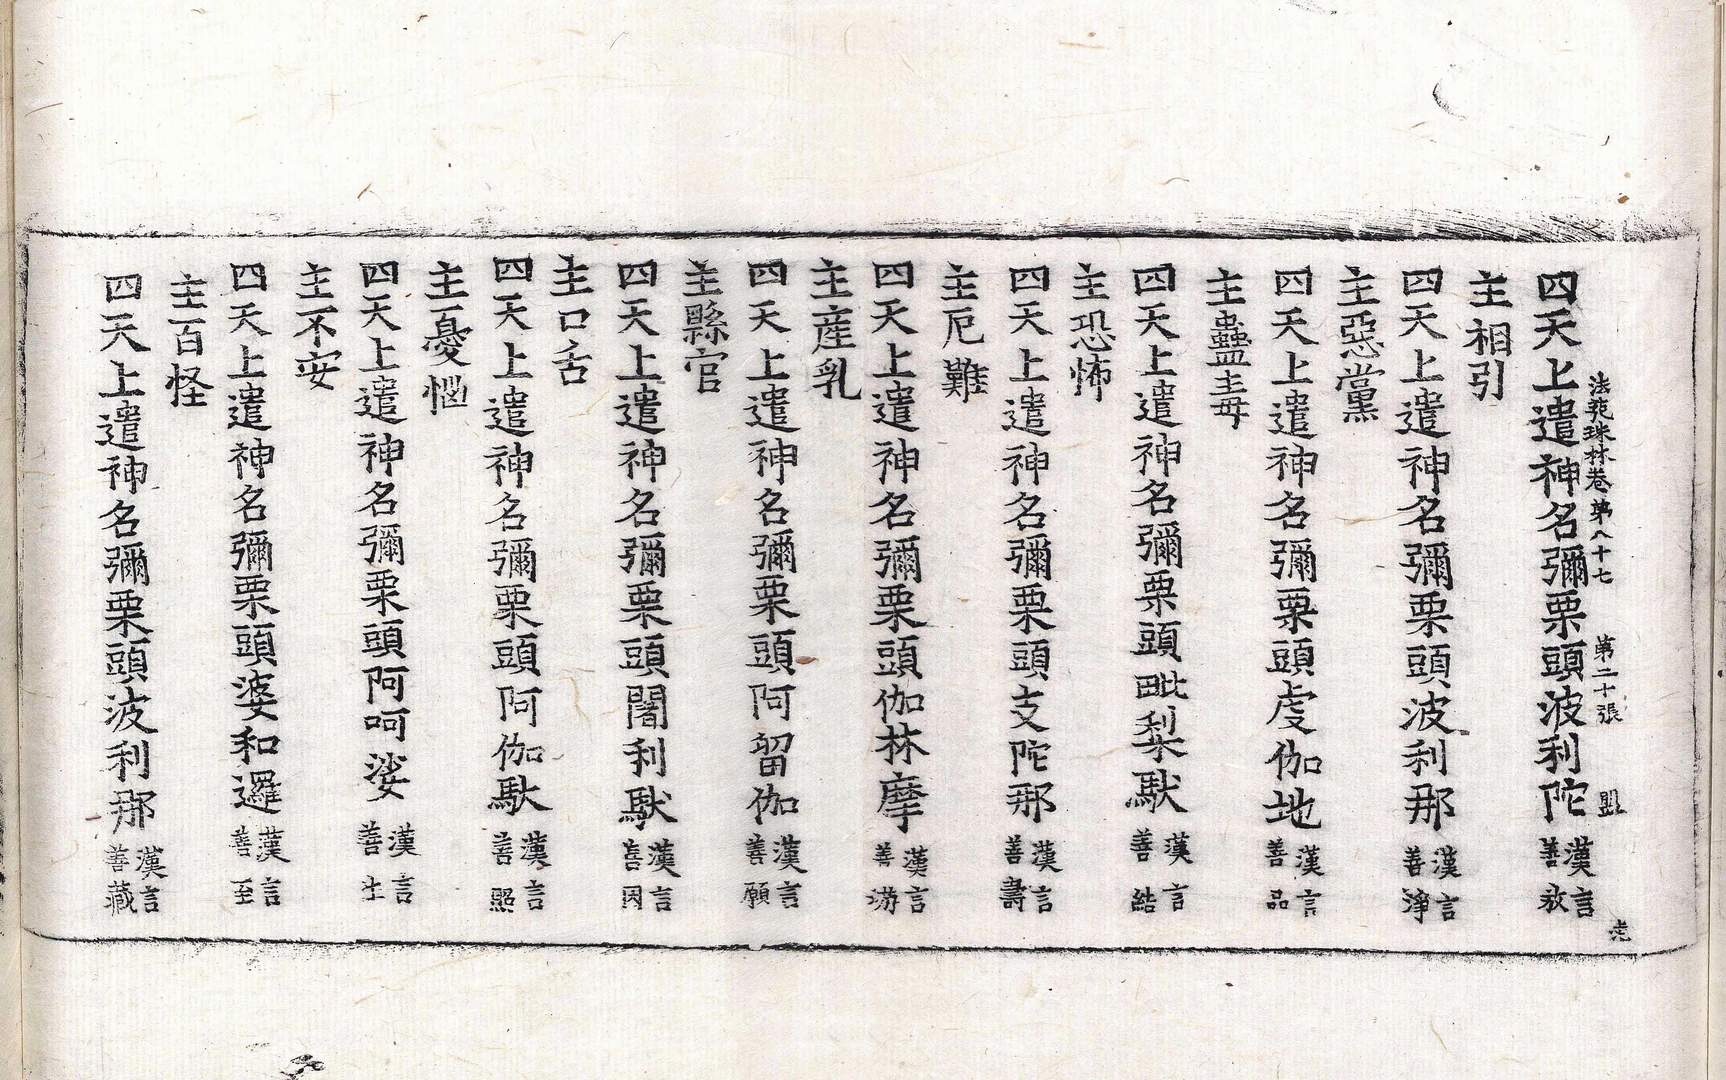 四天上遣神名彌栗頭波利陀漢言善敎
法苑珠林卷第八十七 第二十張 盟
主相引
四天上遣神名彌栗頭波利那漢言善淨
主惡黨
四天上遣神名彌栗頭虔伽地漢言善品
主蠱毒
四天上遣神名彌栗頭毗梨馱漢言善結
主恐怖
四天上遣神名彌栗頭支陀那漢言善壽
主厄難
四天上遣神名彌栗頭伽林摩漢言善
主產乳
四天上遣神名彌栗頭阿留伽漢言善願
主縣官
四天上遣神名彌栗頭闍利馱漢言善因
主口舌
四天上遣神名彌栗頭阿伽馱漢言善照
主憂惱
四天上遣神名彌栗頭阿呵娑漢言善生
主不安
四天上遣神名彌栗頭婆和邏漢言善至
主百怪
四天上遣神名彌栗頭波利那漢言善藏